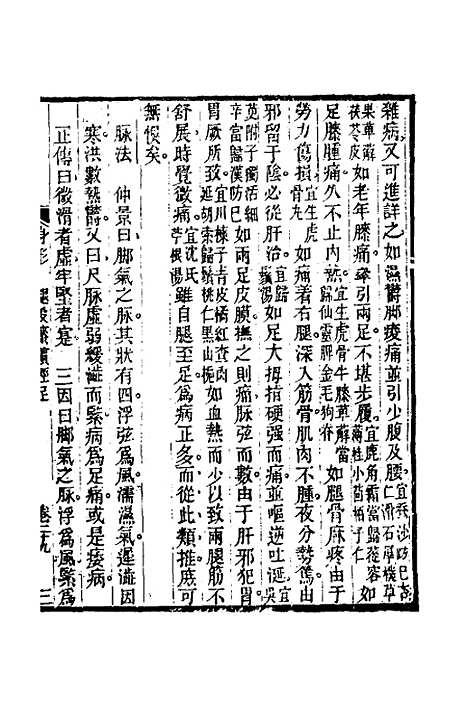 雜病又可進詳之如濕鬱腳痠痛並引少腹及腰宜蚕沙防巳
杏仁滑石厚樸草果萆薢茯苓皮如老年膝痛牽引兩足不堪步履宜鹿角霜當歸蓯容薄桂小茴柏子仁如
足膝腫痛久不止內熱宜生虎骨牛膝萆薢當歸仙靈脾金毛狗脊如腿骨麻疼由于
勞力傷損宜生虎骨丸如痛著右腿深入筋骨肌肉不腫夜分勢篤由
邪留于陰必從肝治宜虎潛丸如足大拇指硬强而痛並嘔逆吐涎宜吳
萸附子獨活細辛當歸漢防巳如兩足皮膜撫之則痛脉弦而數由于肝邪犯胃
胃厥所致宜川楝子青皮橘紅查肉延胡索歸鬚桃仁黑山梔如血熱而少以致兩腿筋不
舒展時覺微痛宜沈氏養陽雖自腿至足爲病正多而從此類推庶可
無悞矣
脉法　仲景曰腳氣之脉其狀有四浮弦爲風濡濕氣遲澁因
寒洪數熱鬱又曰尺脉虛弱緩澁而緊病爲足痛或是痿病
正傳曰微滑者虛牢堅者寔　三因曰腳氣之脉浮爲風緊爲
身形　腿股膝臏脛足　卷二九　三